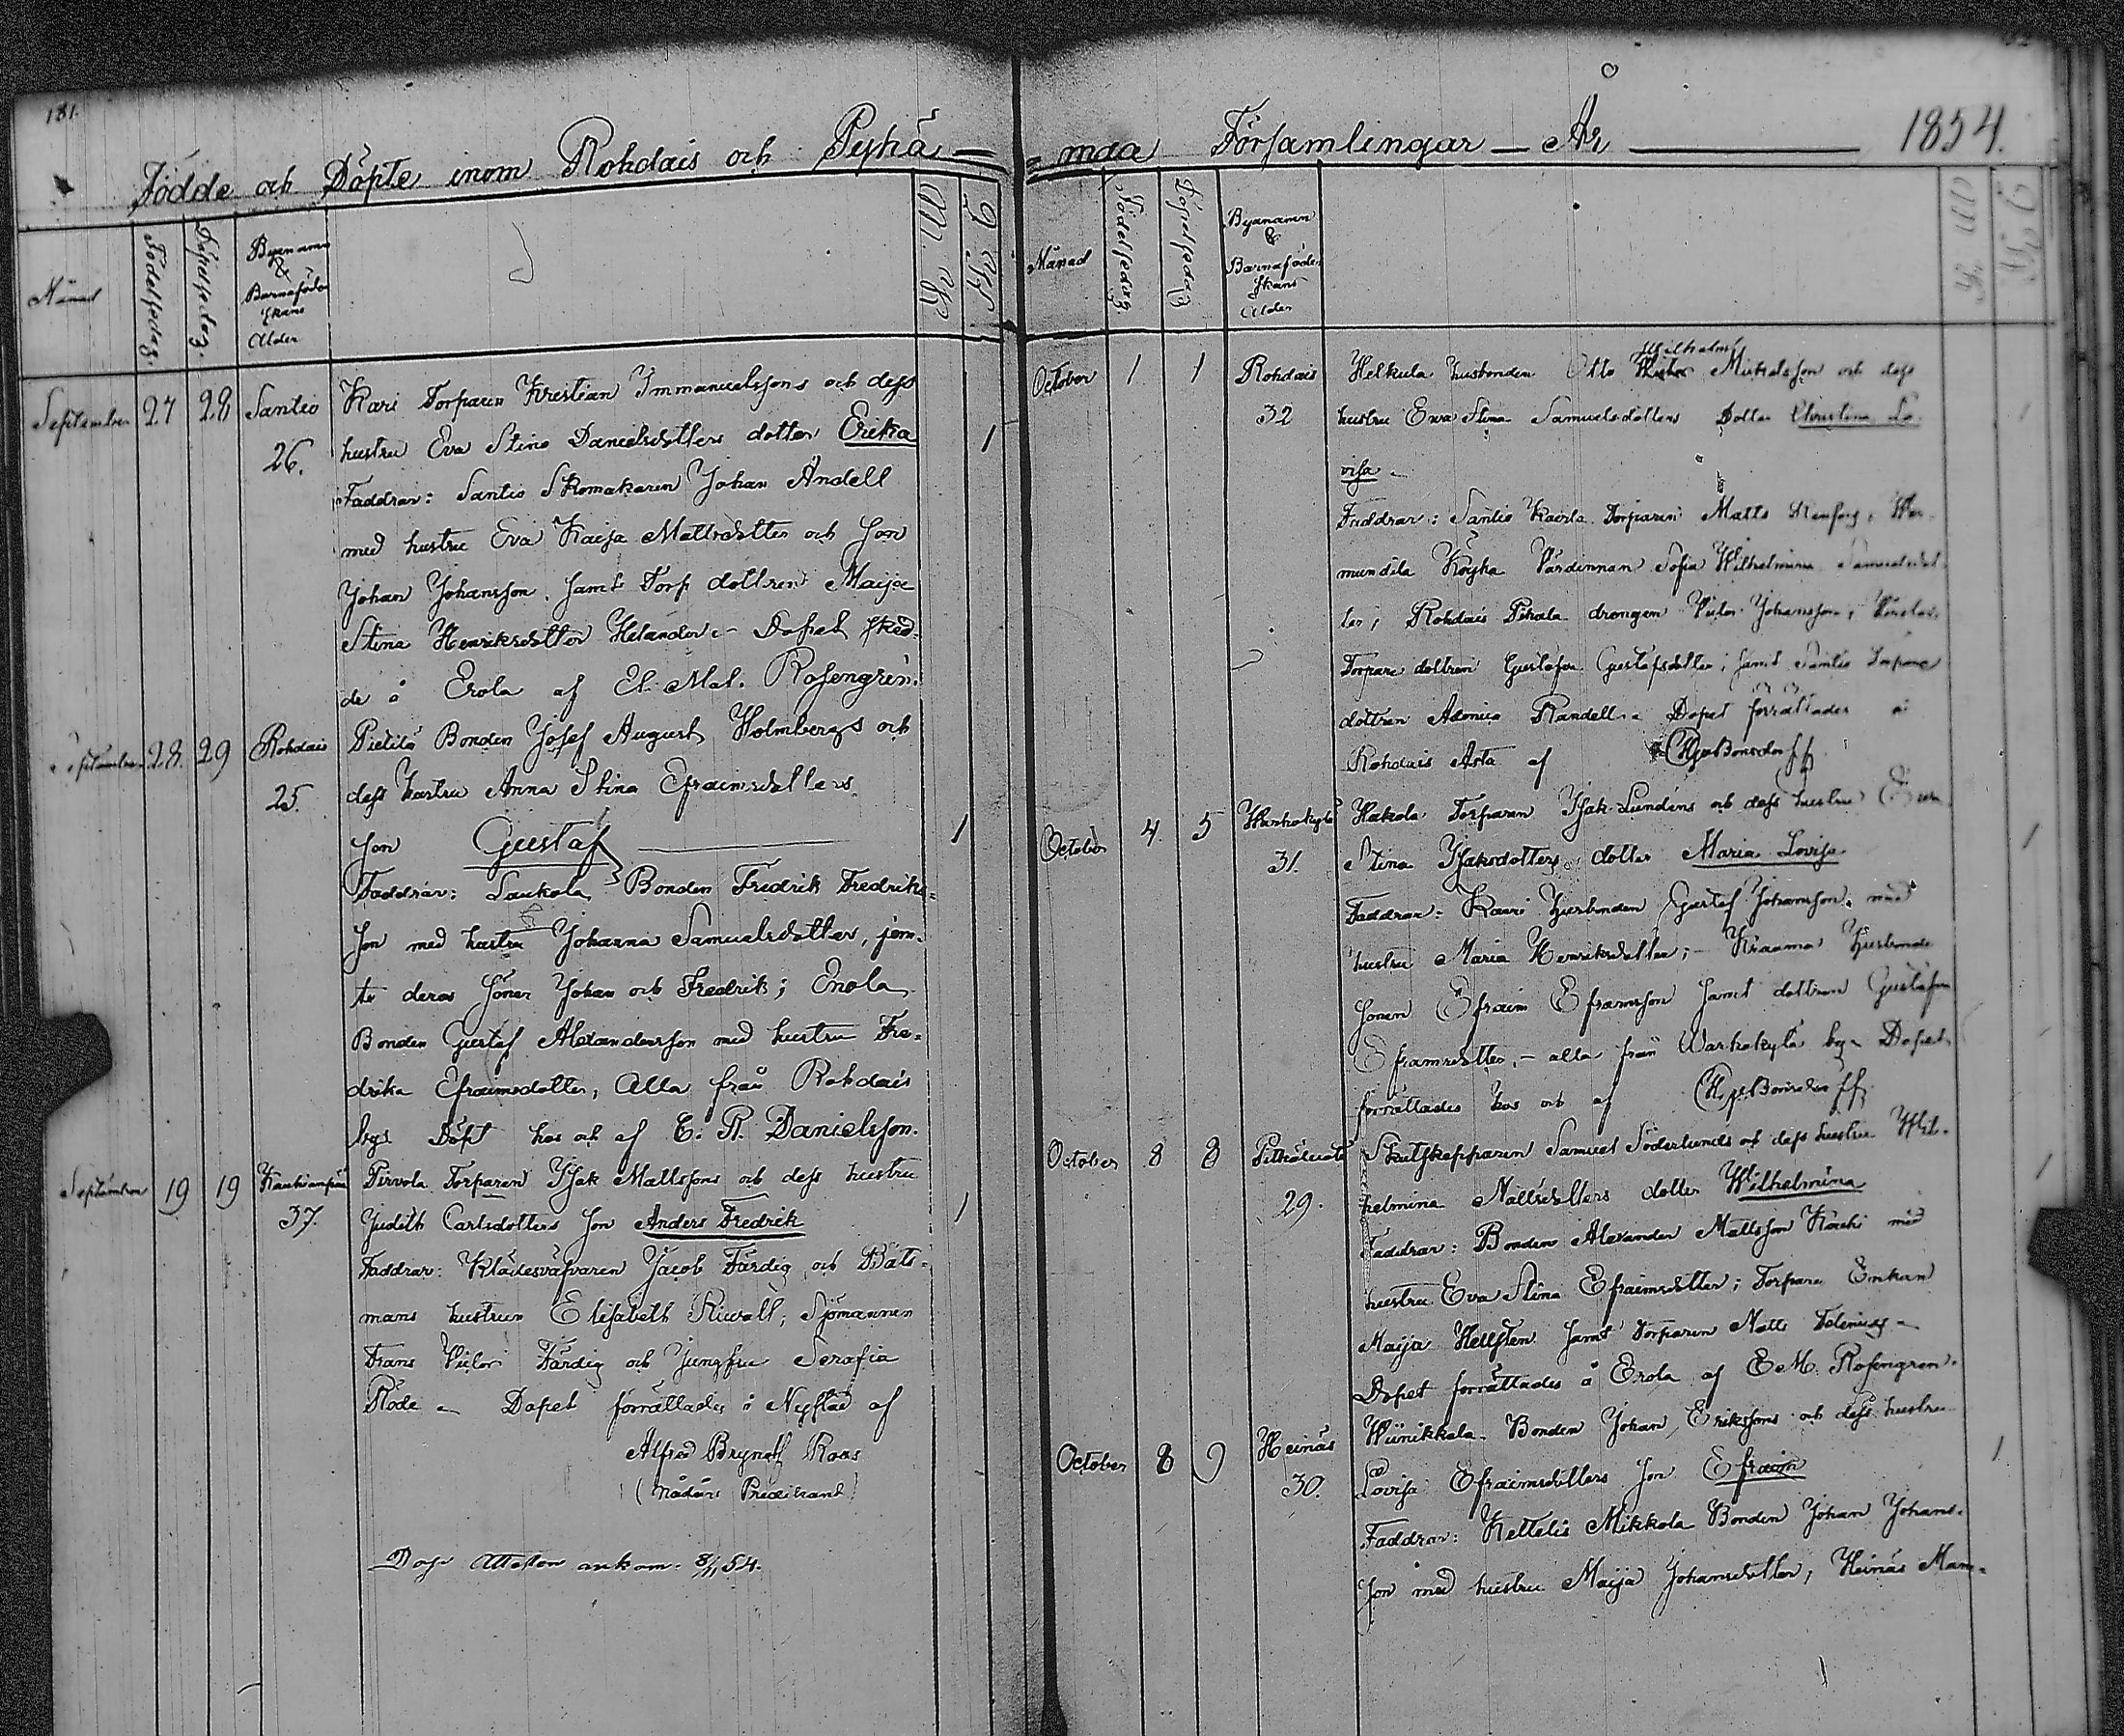 181.
Födde och Döpte inom Rohdais och Pyhä=
Månad
Födelsedag.
Döpelsedag.
Byanamn
&
Barnaföder
skans
Ålder
M. K.
Q. K.
September 27 28 Santio Kari Torparen Kristian Immanuelssons och dess
26. hustru Eva Stina Danielsdotters dotter Erika 1
Faddrar: Santio Skomakaren Johan Andell
med hustru Eva Kaisa Mattsdotter och Son
Johan Johansson. Samt Torp dottren Maija
Stina Henriksdotter Helander. - Dopet sked-
de å Erola af El. Mal. Rosengrén.
September 28. 29 Rohdais Pietilä Bonden Josef August Holmbergs och
25. dess hustru Anna Stina Efraimsdotters
Son Gustaf 1
Faddrar: Laukola Bonden Fredrik Fredriks-
Son med hustru Johanna Samuelsdotter, jem-
te deras Söner Johan och Fredrik; Enola
Bonden Gustaf Alexandersson med hustru Fre-
drika Efraimsdotter; Alla från Rohdais
by. Döpt hos och af C. R. Danielsson.
September 19 19 Pirvola Torparen Isak Mattssons och dess hustru
37. Judith Carlsdotters Son Anders Fredrik 1
Faddrar: Klädesväfvaren Jacob Färdig och Båts-
mans hustrun Elisabeth Riwall; Sjömannen
Frans Victor Färdig och Jungfru Serafia
Röde - Dopet förrättades i Nystad af
Alfred Brynolf Roos
(Nådårs Predikant)
Dop Attesten ankom. 8/11 54.
maa Församlingar — År — 1854.
Månad
Födelsedag.
Döpelsedag
Byanamn
&
Barnaföder
skans
Ålder
M. K.
Q. K.
Wilhelm
October 1 1 Rohdais Helkula husbonden Otto Mickelsson och dess
32 hustru Eva Stina Samuelsdotters Dotter Christina Lo- 1
visa -
Faddrar: Santio Kaerla Torparen Matts
mundila Köykä Värdinnan Sofia Wilhelmina Samuelsdot-
ter, Rohdais Pihala drängen Victor Johansson;
Torpare dottren Gustafva Gustafsdotter; samt Santio Torpare
dottren Randell - Dopet förrättades å
Rohdais Asta af
October 4. 5 Warhokylä Hakola Torparen Isak Lundéns och dess hustru Eva
31. Stina Isaksdotters dotter Maria Lovisa 1
Faddrar: Kauri Husbonden Gustaf Johansson, med
hustru Maria Henriksdotter; - Kraama Husbonde
Sonen Efraim Eframsson samt dottren Gustafva
Eframsdotter, - alla från Warhokylä by - Dopet
förrättades hos och af
October 8 8 Skutskepparen Samuel Söderlunds och dess hustru Wil-
29. helmina Mattsdotters dotter Wilhelmina 1
Faddrar: Bonden Alexander Mattsson Kächi med
hustru Eva Stina Efraimsdotter; Torpare Enkan
Maija Hellsten samt Torparen Matts
Dopet förrättades å Erola af E. M. Rosengren.
October 8 9 Heinäs Wiinikkala Bonden Johan Erikssons och dess hustru 1
30. Lovisa Efraimsdotters Son Efraim
Faddrar: Kettelis Mikkola Bonden Johan Johans-
Son med hustru Maija Johansdotter, Heinäs Man-